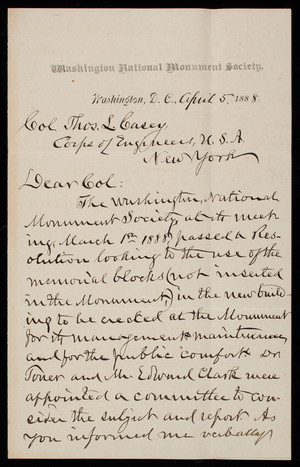 Washington National Monument Society.
Washington, D. C., April 5, 1888.
Col. Thos. L. Casey
Corps of Engineers, U. S. A.
New York
Dear Col:
The Washington National
Monument Society at its meet-
ing, March 1st 1888, passed a Res-
olution looking to the use of the
memorial blocks (not inserted
in the Monument) in the new build-
ing to be erected at the Monument
for its management & maintenance
and for the public comfort. Dr.
Toner and Mr. Edward Clark were
appointed a committee to con-
sider the subject and report. As
you informed me verbally